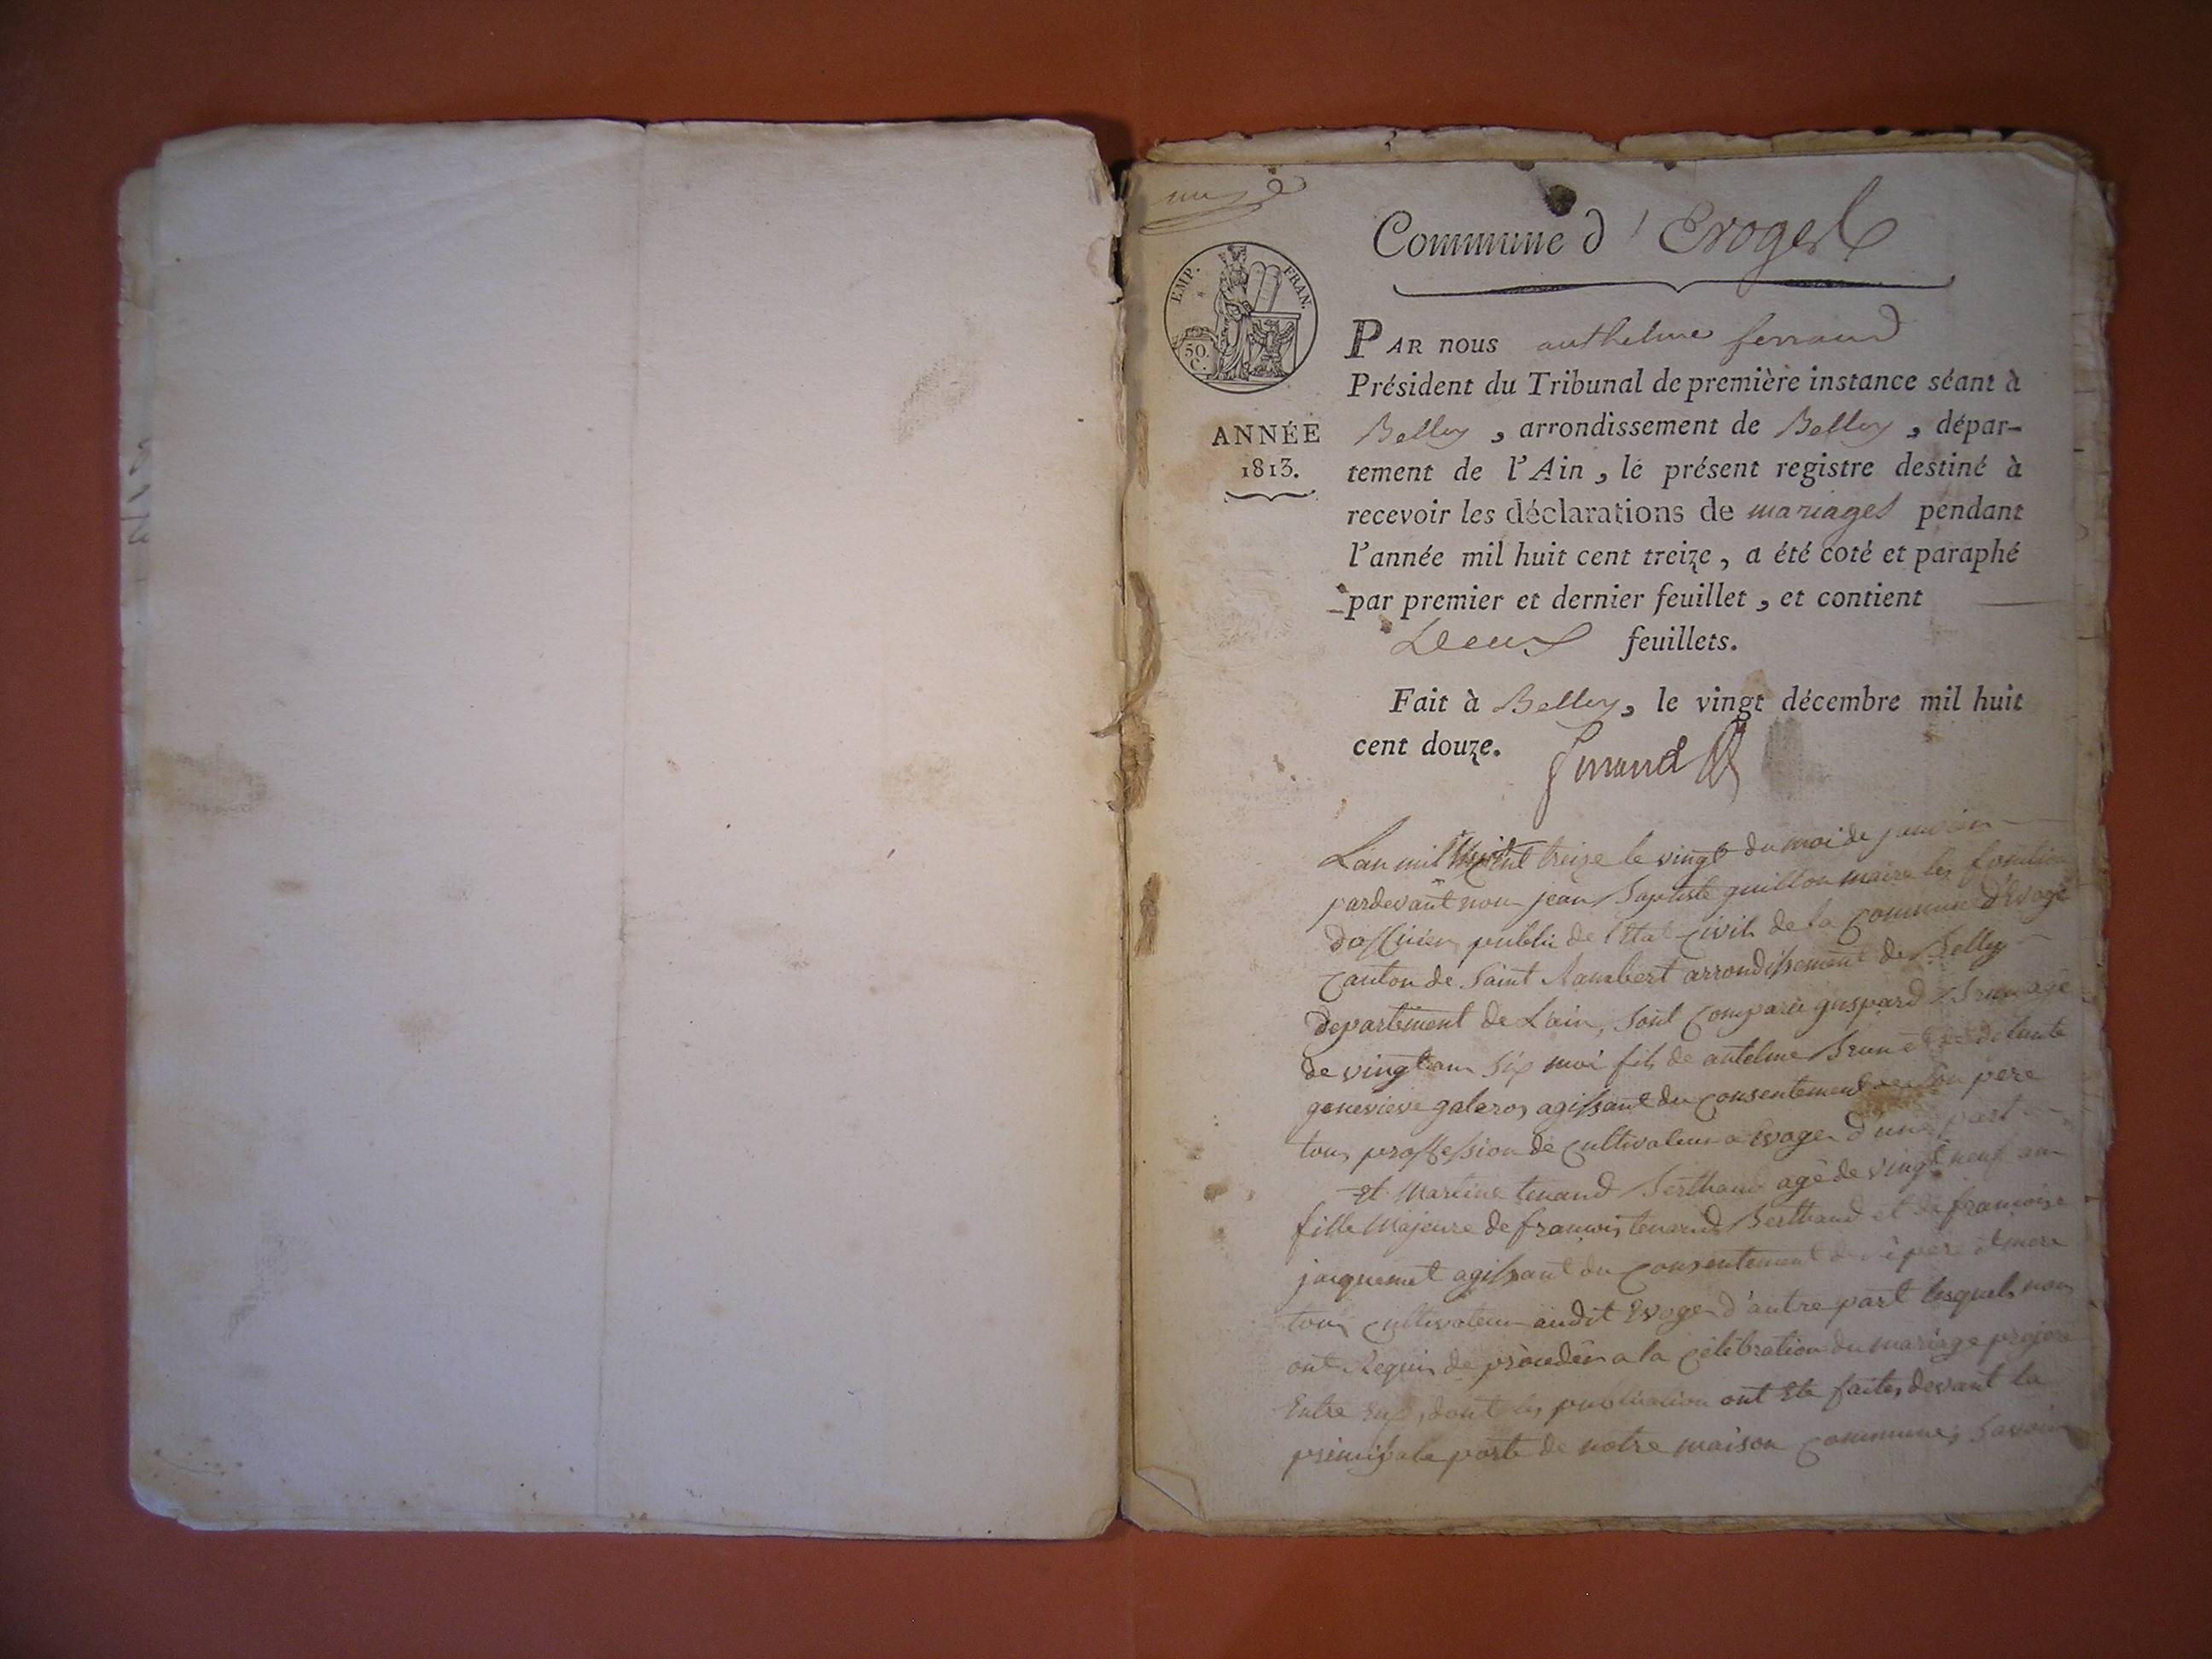 Commune d'Evoges
EMP. FRAN.
50.
C.
ANNÉE
1813.
PAR nous anthelme ferrand
Président du Tribunal de première instance séant à
Belley, arrondissement de Belley, dépar-
tement de l'Ain, le présent registre destiné à
recevoir les déclarations de mariages pendant
l'année mil huit cent treize, a été coté et paraphé
par premier et dernier feuillet, et contient
Deux feuillets.
Fait à Belley, le vingt décembre mil huit
cent douze. ferrand
L'an mil huit cent treize le vingt du moi de janvier
pardevant nous jean Baptiste guillon maire les fonction
d'officier public de l'Etat Civil de la Commune d'Evoge
Canton de Saint Rambert arrondissement de Belley
departement de L'ain, sont comparu gaspard Brun agé
de vingt ans six moi fils de antelme Brun et de defunte
genevieve galeros agissant du consentement de son pere
tous proffession de cultivateur a Evoges d'une part
et Martine tenand Berthand agé de vingt neuf ans
fille Majeure de francois tenand Berthand et de francoise
jacquemet agissant du consentement de pere et mere
tous cultivateur audit Evoges d'autre part lesquels nous
ont Requis de proceder a la celebration du mariage projeté
Entre Eux, dont les publication ont Eté faites devant la
principale porte de notre maison commune, Savoir